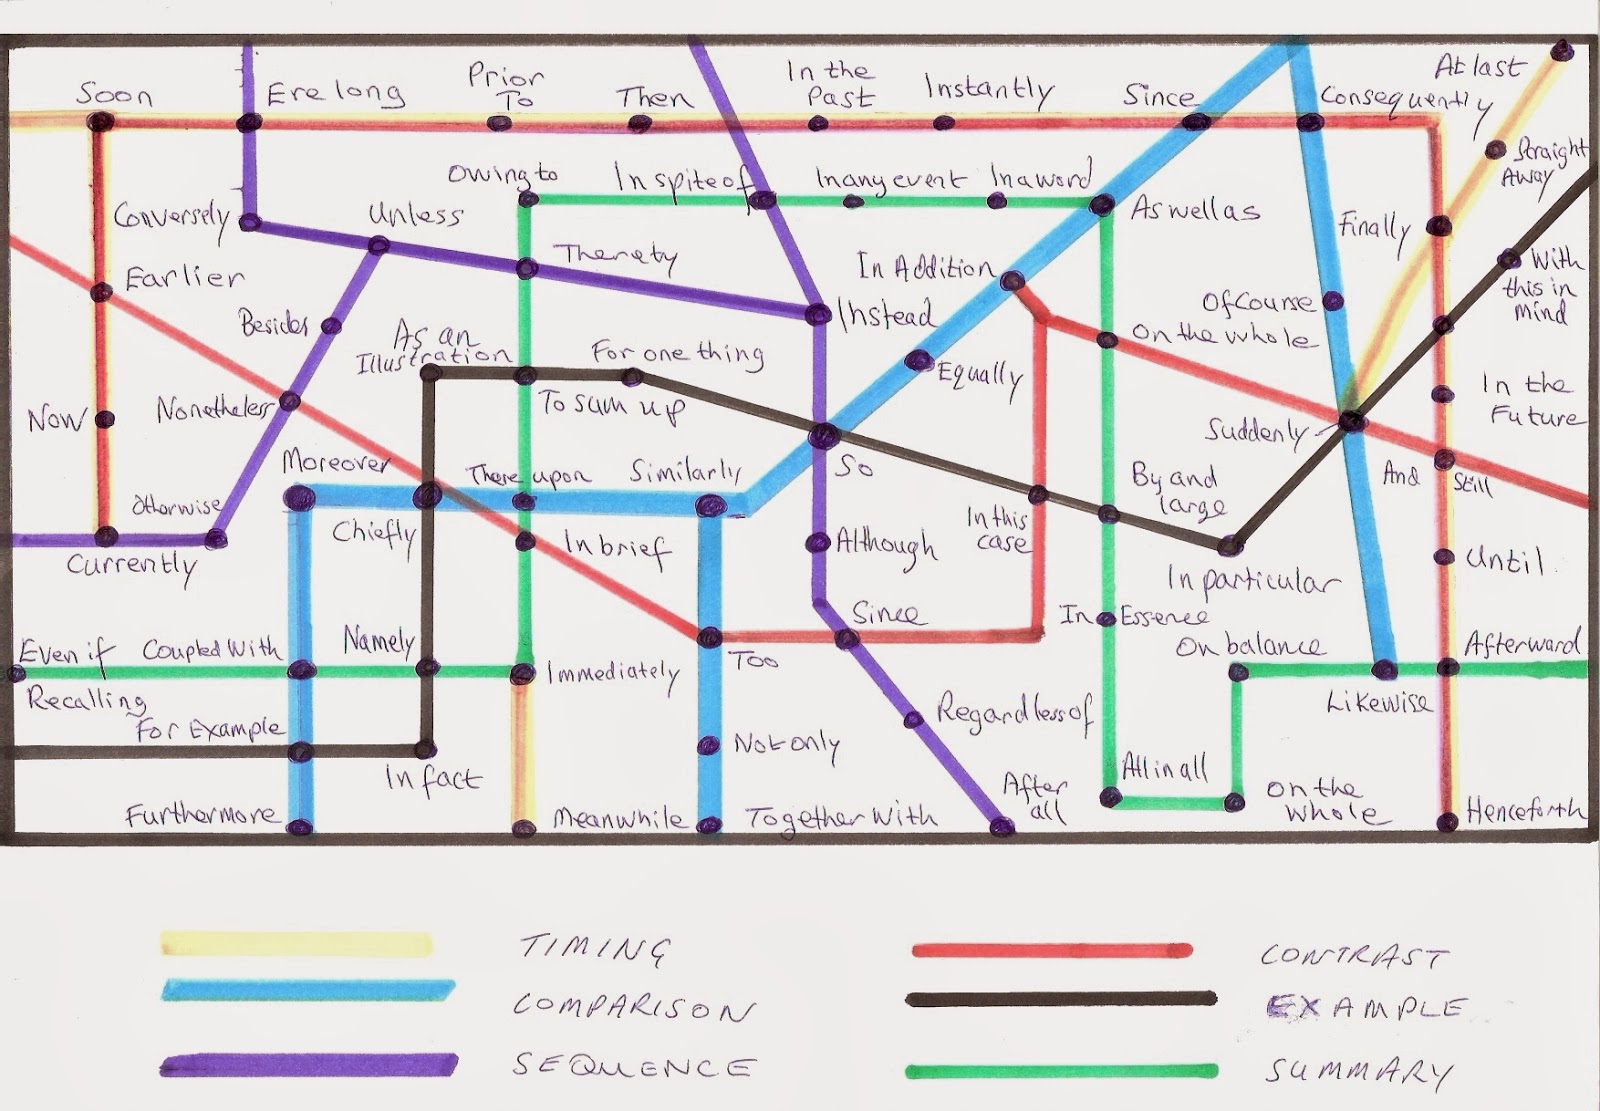 At last
Prior
To
In the
Past
Soon
Ere long
Then
Instantly
Since
Consequently
Straight
Away
Owing to
In spite of
In any event
In a word
As well as
Conversely
Unless
Finally
Thereby
In Addition
With
this in
mind
Earlier
Besides
Instead
Of Course
As an
Illustration
For one thing
On the whole
Equally
In the
Future
Now
Nonetheless
To sum up
Suddenly
Moreover
There upon
Similarly
So
By and
large
And
Still
Otherwise
Chiefly
In brief
Although
In this
case
Currently
In particular
Until
Since
In Essence
Even if
Coupled With
Namely
Immediately
Too
On balance
Afterward
Recalling
Likewise
For Example
Regardless of
Not only
In fact
All in all
After
all
On the
whole
Furthermore
Meanwhile
Together With
Henceforth
TIMING
CONTRAST
COMPARISON
EXAMPLE
SEQUENCE
SUMMARY